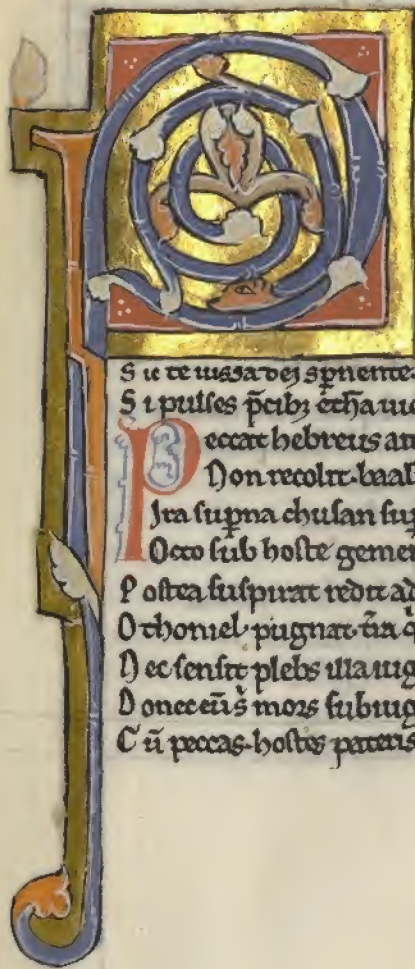 P
S ic te iussa dei sꝑnente
S i pulses p̄cibꝫ et̄ha
P eccat hebreus
Non recolit. baal
Ira sup̄na chusan
Octo sub hoste gemer
P ostea suspirat redit ad
O thoniel. pugnat.
N ec sensit plebs illa iug
D onec ei᷒ mors subiug
C ū peccas. hostes pateris